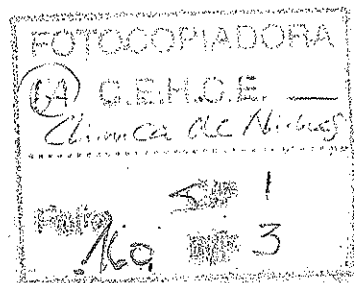 FOTOCOPIADORA
C.E.H.C.E.
Clínica de Niños
Folio
160 3